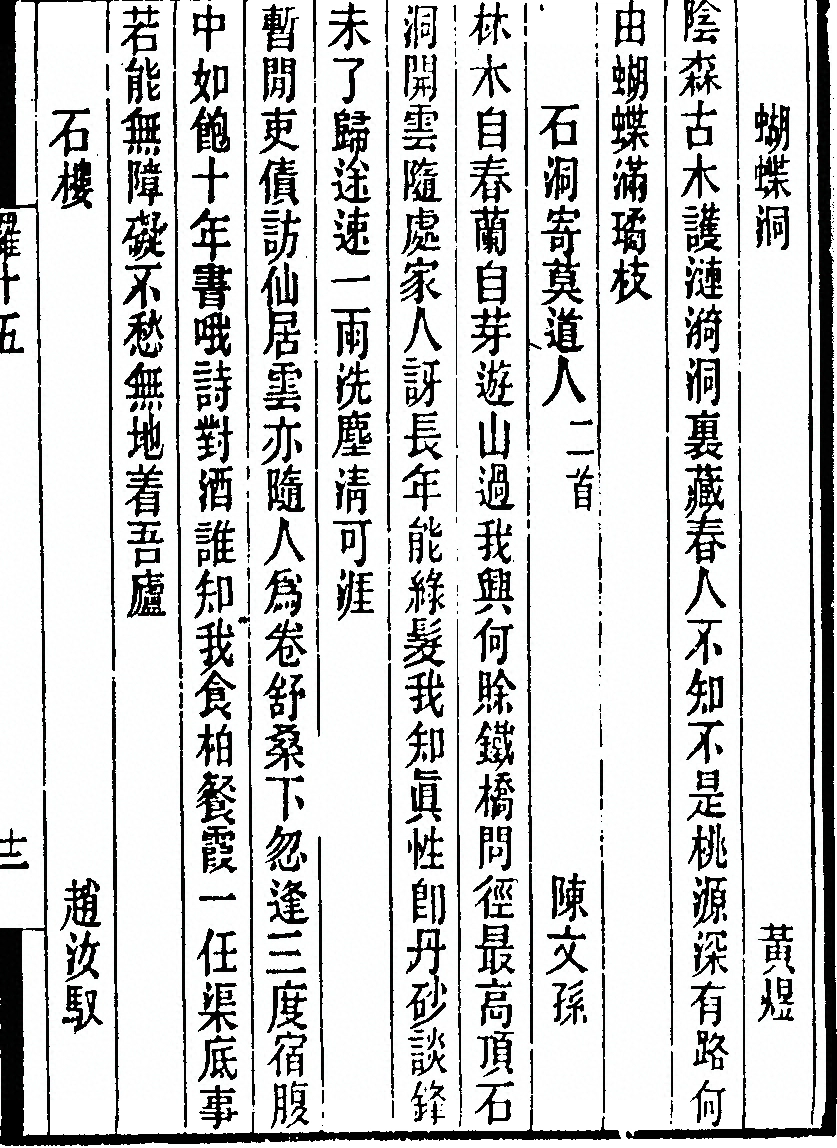 蝴蝶洞 黃煜
陰森古木護漣漪洞裏藏春人不知不是桃源深有路何
由蝴蝶滿璚枝
石洞寄莫道人二首 陳文孫
林木自春蘭自芽遊山過我興何賒鐵橋問徑最高頂石
洞開雲隨處家人訝長年能綠髮我知眞性卽丹砂談鋒
未了歸途速一雨洗塵淸可涯
暫閒吏債訪仙居雲亦隨人爲卷舒桑下忽逢三度宿腹
中如飽十年書哦詩對酒誰知我食柏餐霞一任渠底事
若能無障礙不愁無地着吾廬
石樓 趙汝馭
羅十五
十二